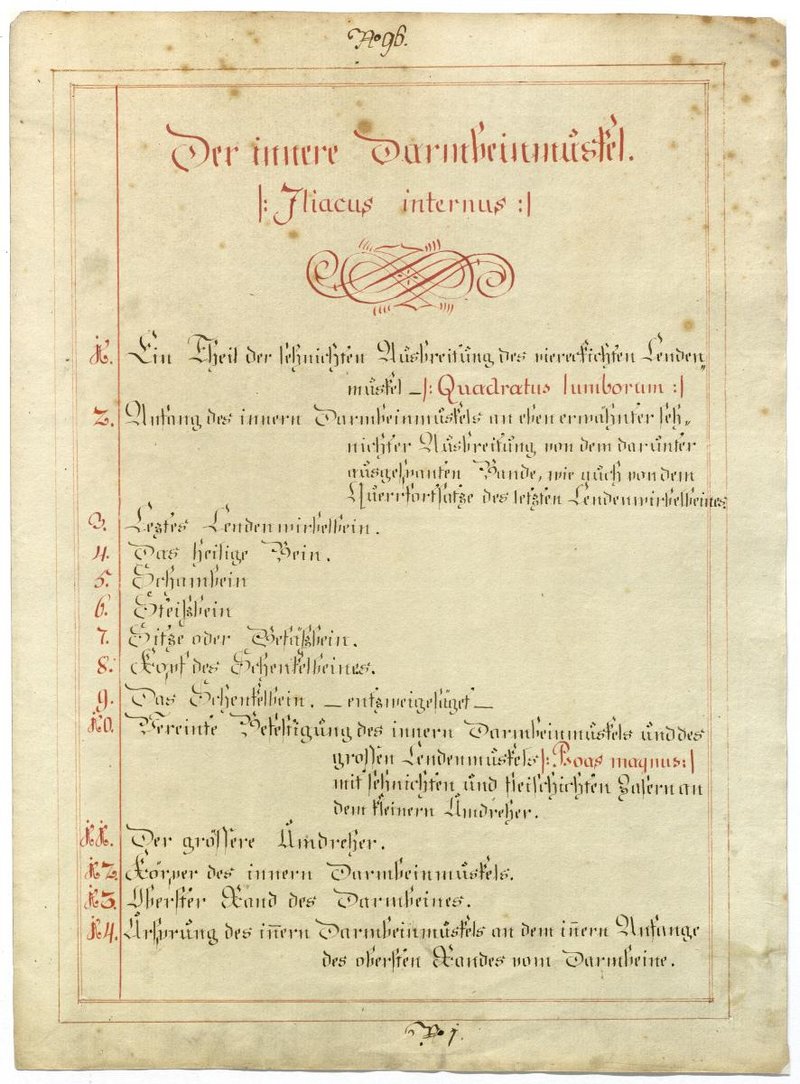 No 96.
Der innere Darmbeinmuskel.
|: Iliacus internus :|
1. Ein Theil der sehnichten Ausbreitung des viereckichten Lenden„
muskel _|: Quadratus lumborum :|
2. Anfang des innern Darmbeinmuskels an eben erwähnter seh„
nichter Ausbreitung von dem darunter
ausgespanten Bande, wie auch von dem
Querrfortsatze des letzten Lendenwirbelbeines
3. Leztes Lendenwirbelbein.
4. Das heilige Bein.
5. Schambein
6. Steißbein
7. Sitze oder Gesäßbein.
8. Kopf des Schenkelbeines.
9. Das Schenkelbein. _ entzweigesäget _
10. Vereinte Befestigung des innern Darmbeinmuskels und des
grossen Lendenmuskels |: Psoas magnus :|
mit sehnichten und fleischichten Fasern an
dem kleinern Umdreher.
11. Der grössere Umdreher.
12. Körper des innern Darmbeinmuskels.
13. Oberster Rand des Darmbeines.
14. Ursprung des iñern Darmbeinmuskels an dem iñern Anfange
des obersten Randes vom Darmbeine.